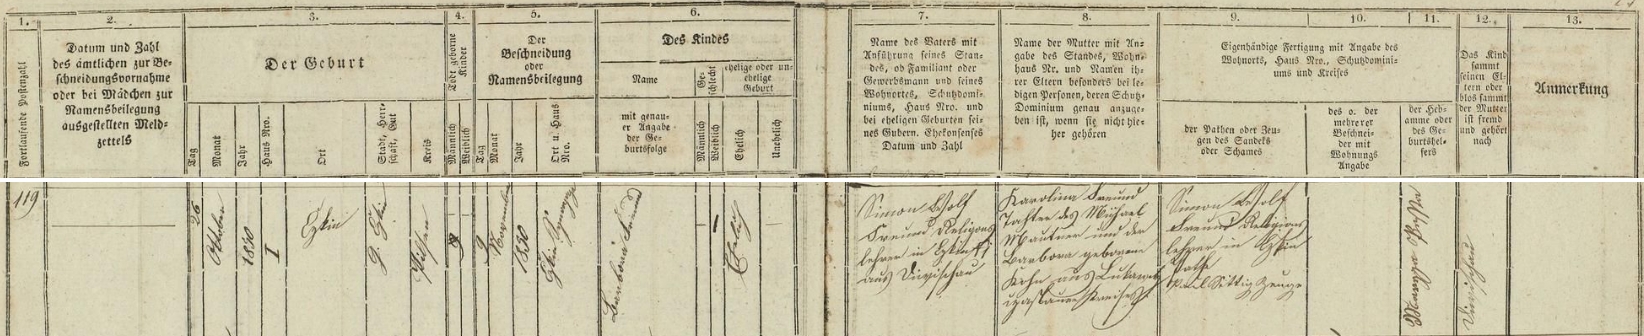 1.
2.
3.
4.
5.
6.
7.
8.
9.
10.
11.
12.
13.
Fortlaufende Postenzahl
Datum und Zahl
des ämtlichen zur Be-
schneidungsvornahme
oder bei Mädchen zur
Namensbeilegung
ausgestellten Meld-
zettels
Der Geburt
Tag
Monat
Jahr
Haus Nro.
Ort
Stadt, Herr-
schaft, Gut
Kreis
Todt geborne
Kinder
Männlich
Weiblich
Der
Beschneidung
oder
Namensbeilegung
Tag
Monat
Jahr
Ort u. Haus
Nro.
Des Kindes
Name
mit genau-
er Angabe
der Ge-
burtsfolge
Ge-
schlecht
Männlich
Weiblich
ehelige oder un-
ehelige
Geburt
Ehelich
Unehelich
Name des Vaters mit
Anführung seines Stan-
des, ob Familiant oder
Gewerbsmann und seines
Wohnortes, Schutzdomi-
niums, Haus Nro. und
bei eheligen Geburten sei-
nes Gubern. Ehekonsenses
Datum und Zahl
Name der Mutter mit An-
gabe des Standes, Wohn-
haus Nr. und Namen ih-
rer Eltern besonders bei le-
digen Personen, deren Schutz-
Dominium genau anzuge-
ben ist, wenn sie nicht hie-
her gehören
Eigenhändige Fertigung mit Angabe des
Wohnorts, Haus Nro., Schutzdomini-
ums und Kreises
der Pathen oder Zeu-
gen des Sandeks
oder Schames
des o. der
mehrerer
Beschnei-
der mit
Wohnungs
Angabe
der Heb-
amme oder
des Ge-
burtshel-
fers
Das Kind
sammt
seinen El-
tern oder
blos sammt
der Mutter
ist fremd
und gehört
nach
Anmerkung
119
26
Oktober
1850
I
Pilsen
9
November
1850
Barbara Freund
Ehelig
Simon Wolf
Freund Religions
lehrer in
aus Diwischau
Karolina Freund
Tochter des Michael
Mautner und der
Barbara geborene
Kohn aus
Kreises
Simon Wolf
Freund Religions
lehrer in
Pathe
Sittig Zeuge
Diwischau